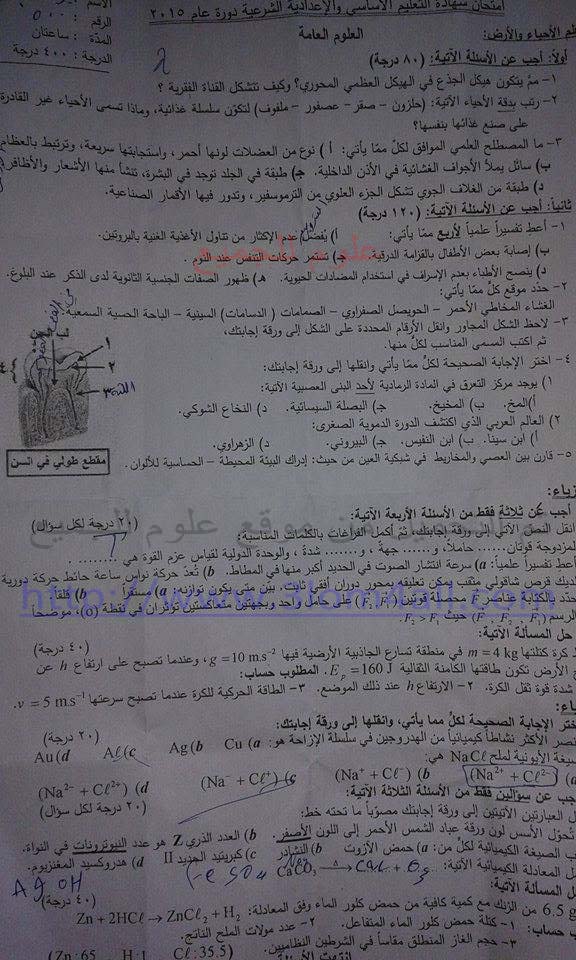 امتحان شهادة التعليم الأساسي والإعدادية الشرعية دورة عام ٢٠١٥
الاسم:
الرقم:
المدّة : ساعتان
الدرجة : ٤٠٠ درجة
علم الأحياء والأرض: العلوم العامة
أولاً: أجب عن الأسئلة الآتية: (٨٠ درجة)
١- ممَّ يتكون هيكل الجذع في الهيكل العظمي المحوري؟ وكيف تتشكل القناة الفقرية ؟
٢- رتب بدقة الأحياء الآتية: (حلزون - صقر - عصفور - ملفوف) لتكوّن سلسلة غذائية، وماذا تسمى الأحياء غير القادرة
على صنع غذائها بنفسها؟
٣- ما المصطلح العلمي الموافق لكلّ ممّا يأتي: أ ) نوع من العضلات لونها أحمر، واستجابتها سريعة، وترتبط بالعظام
ب) سائل يملأ الأجواف الغشائية في الأذن الداخلية. ج) طبقة في الجلد توجد في البشرة، تنشأ منها الأشعار والأظافر
د) طبقة من الغلاف الجوي تشكل الجزء العلوي من الترموسفير، وتدور فيها الأقمار الصناعية.
ثانياً: أجب عن الأسئلة الآتية: (١٢٠ درجة)
١- أعطِ تفسيراً علمياً لأربع ممّا يأتي: أ) يُفضّل عدم الإكثار من تناول الأغذية الغنية بالبروتين.
ب) إصابة بعض الأطفال بالقزامة الدرقية. ج) تستمر حركات التنفس عند النوم .
د) ينصح الأطباء بعدم الإسراف في استخدام المضادات الحيوية. هـ) ظهور الصفات الجنسية الثانوية لدى الذكر عند البلوغ.
٢- حدّد موقع كلّ ممّا يأتي:
الغشاء المخاطي الأحمر - الحويصل الصفراوي - الصمامات ( الدسامات) السينية - الباحة الحسية السمعية.
٣- لاحظ الشكل المجاور وانقل الأرقام المحددة على الشكل إلى ورقة إجابتك،
ثم اكتب المسمى المناسب لكلّ منها.
١
٢
٣
مقطع طولي في السن
٤- اختر الإجابة الصحيحة لكلّ ممّا يأتي وانقلها إلى ورقة إجابتك:
١) يوجد مركز التعرق في المادة الرمادية لأحد البنى العصبية الآتية:
أ)المخ. ب) المخيخ. ج) البصلة السيسائية. د) النخاع الشوكي.
٢) العالم العربي الذي اكتشف الدورة الدموية الصغرى:
أ) ابن سينا. ب) ابن النفيس. ج) البيروني. د) الزهراوي.
٥- قارن بين العصي والمخاريط في شبكية العين من حيث: إدراك البيئة المحيطة - الحساسية للألوان.
علوم للجميع
أجب عن ثلاثة فقط من الأسئلة الأربعة الآتية: (٢٠ درجة لكل سؤال)
انقل النص الآتي إلى ورقة إجابتك، ثم أكمل الفراغات بالكلمات المناسبة:
لمزدوجة قوتان...... حاملاً، و...... جهة ، و....... شدةً ، والوحدة الدولية لقياس عزم القوة هي ........ .
أعطِ تفسيراً علمياً: a) سرعة انتشار الصوت في الحديد أكبر منها في المطاط. b) تُعدّ حركة نواس ساعة حائط حركة دورية
لديك قرص شاقولي مثقب يمكن تعليقه بمحور دوران أفقي ثابت، بيّن متى يكون توازنه: a) مستقراً b) قلقاً
http://www.3lom4all.com
حل المسألة الآتية: (٤٠ درجة)
كرة كتلتها m = 4 kg في منطقة تسارع الجاذبية الأرضية فيها g = 10 m.s⁻² ، وعندما تصبح على ارتفاع h عن
الأرض تكون طاقتها الكامنة الثقالية E_p = 160 J. المطلوب حساب:
شدة قوة ثقل الكرة. ٢- الارتفاع h عند ذلك الموضع. ٣- الطاقة الحركية للكرة عندما تصبح سرعتها v = 5 m.s⁻¹.
اختر الإجابة الصحيحة لكلّ مما يأتي، وانقلها إلى ورقة إجابتك: (٢٠ درجة)
العنصر الأكثر نشاطاً كيميائياً من الهيدروجين في سلسلة الإزاحة هو: a) Cu b) Ag c) Al d) Au
الصيغة الأيونية لملح NaCl هي:
a) (Na²⁺ + Cl²⁻) b) (Na⁺ + Cl⁻) c) (Na⁻ + Cl⁺) d) (Na²⁻ + Cl²⁺)
أجب عن سؤالين فقط من الأسئلة الثلاثة الآتية: (٢٠ درجة لكل سؤال)
انقل العبارتين الآتيتين إلى ورقة إجابتك مصوّباً ما تحته خط:
تُحوّل الأسس لون ورقة عباد الشمس الأحمر إلى اللون الأصفر. b) العدد الذري Z هو عدد النيوترونات في النواة.
اكتب الصيغة الكيميائية لكلّ من: a) حمض الآزوت b) النشادر c) كبريتيد الحديد II d) هدروكسيد المغنزيوم.
المعادلة الكيميائية الآتية: CaCO₃ →
AgOH
حل المسألة الآتية: (٤٠ درجة)
6.5 g من الزنك مع كمية كافية من حمض كلور الماء وفق المعادلة: Zn + 2HCl → ZnCl₂ + H₂
حساب: ١- كتلة حمض كلور الماء المتفاعل. ٢- عدد مولات الملح الناتج.
٣- حجم الغاز المنطلق مقاساً في الشرطين النظاميين. (Zn:65 , H:1 , Cl:35.5)
انتهت الأسئلة